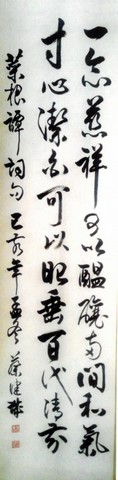 一念慈祥可以醞釀兩間和氣
寸心潔白可以昭垂百代清芬
菜根譚詞句 己亥年孟冬 蔡健